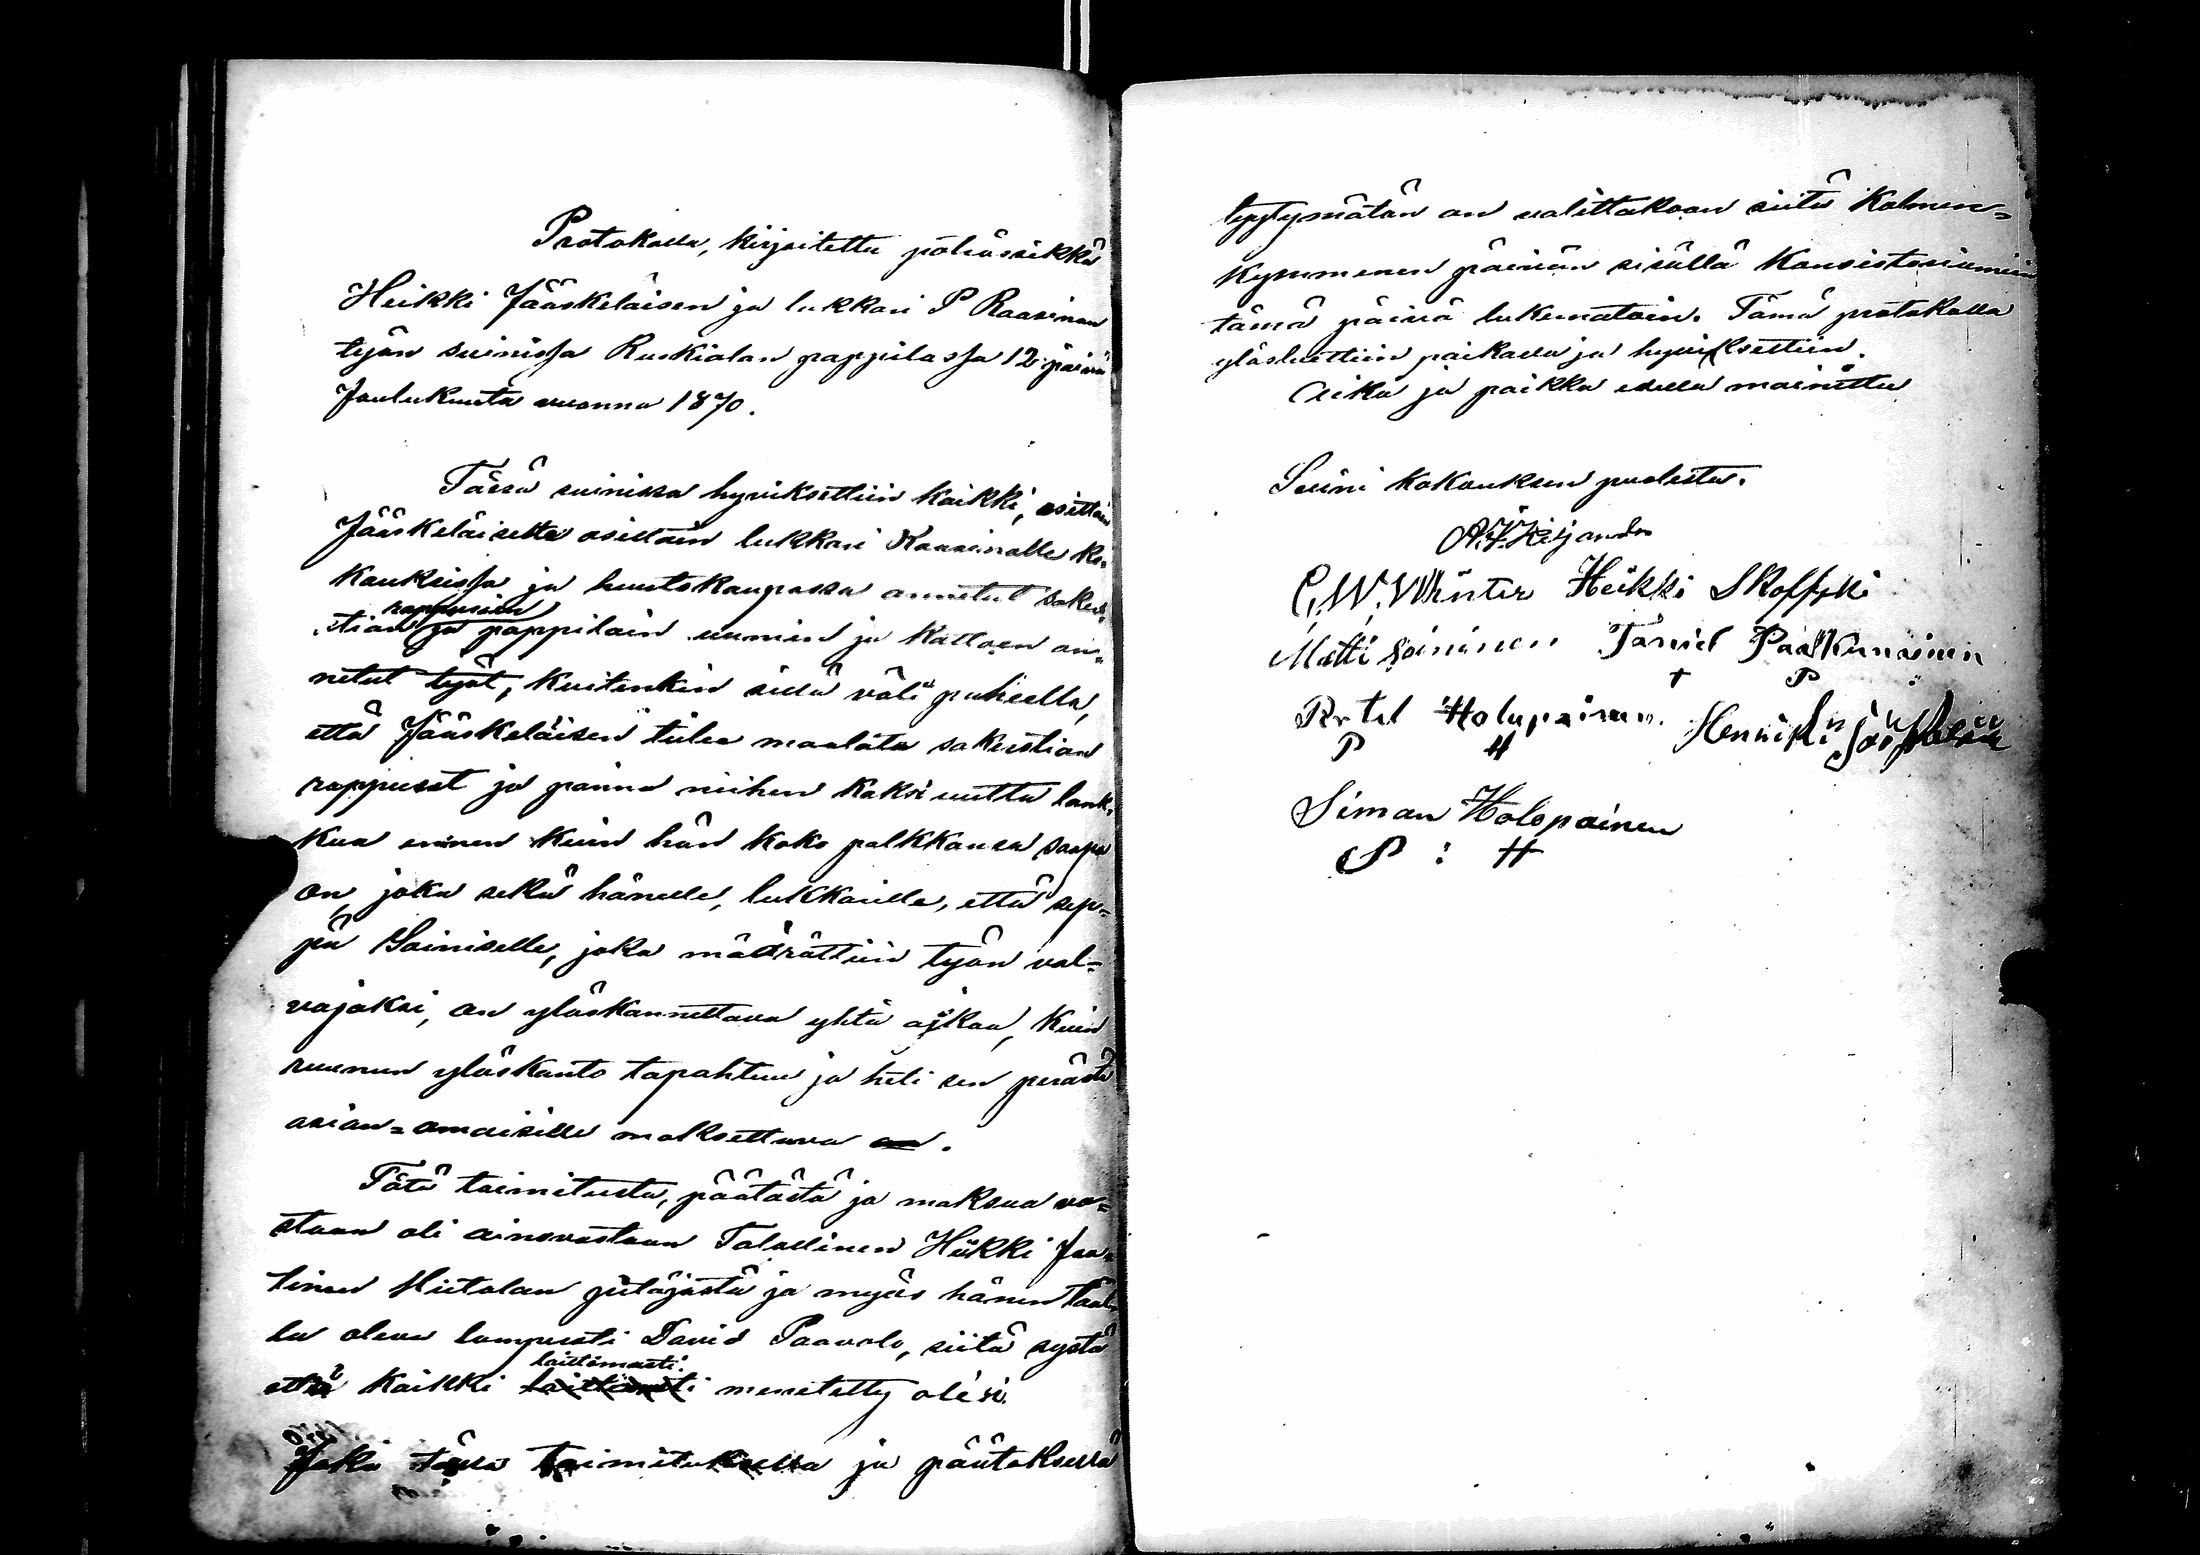 Protokolla, kirjoitettu pöhässikkä
Heikki Jääskeläisen ja lukkari P Raasinan
työn suinissa Ruskialan pappilassa 12 päivä
Joulukuuta vuonna 1870.
Tässä suinissa hyviksettiin kaikki, osittain
Jääskeläiselle osittain lukkari Raasinalle ko-
kouksissa ja huutokaupassa annetut sakas-
rappusien
tian ja pappilain uunien ja kattoen an-
netut työt, kuitenkin sillä väli puheella,
että Jääskeläisen tulee maalata sakastian
rappuset ja panna niihen kaksi uutta lank-
kua ennen kuin hän koko palkkansa saapa
on, joka sekä hänelle, lukkarille, että sep-
pä Soiniselle, joka määrättiin työn val-
vojaksi, on ylöskannettava yhtä aikaa, kuin
ruunun ylöskanto tapahtuu ja heti sen perästä
asian-omaisille maksettava on.
Tätä toimitusta, päätöstä ja maksua va-
staan oli ainovastaan Talollinen Heikki Jaa-
tinen Hiitolan pitäjästä ja myös hänen tääl-
lä oleva lampuoti David Paavola, siitä systä
laittomasti
että kaikki menetetty olisi.
Joka tässä toimituksessa ja päätöksessä
tyytymätön on valittakoon siitä kolmen-
kymmenen päivän sisällä Konsistoriumiin
tämä päivä lukematoin. Tämä protokolla
ylösluettiin paikalla ja hyviksettiin.
Aika ja paikka edellä mainittu
Suini kokouksen puolesta.
A. F. Kiljander
C. W. Winter Heikki Skoffski
Matti Soininen Taniel Paakkunainen
+ P
Petel Holopainen. Henriki Jääskeläi
P H
Siman Holopainen
S : H